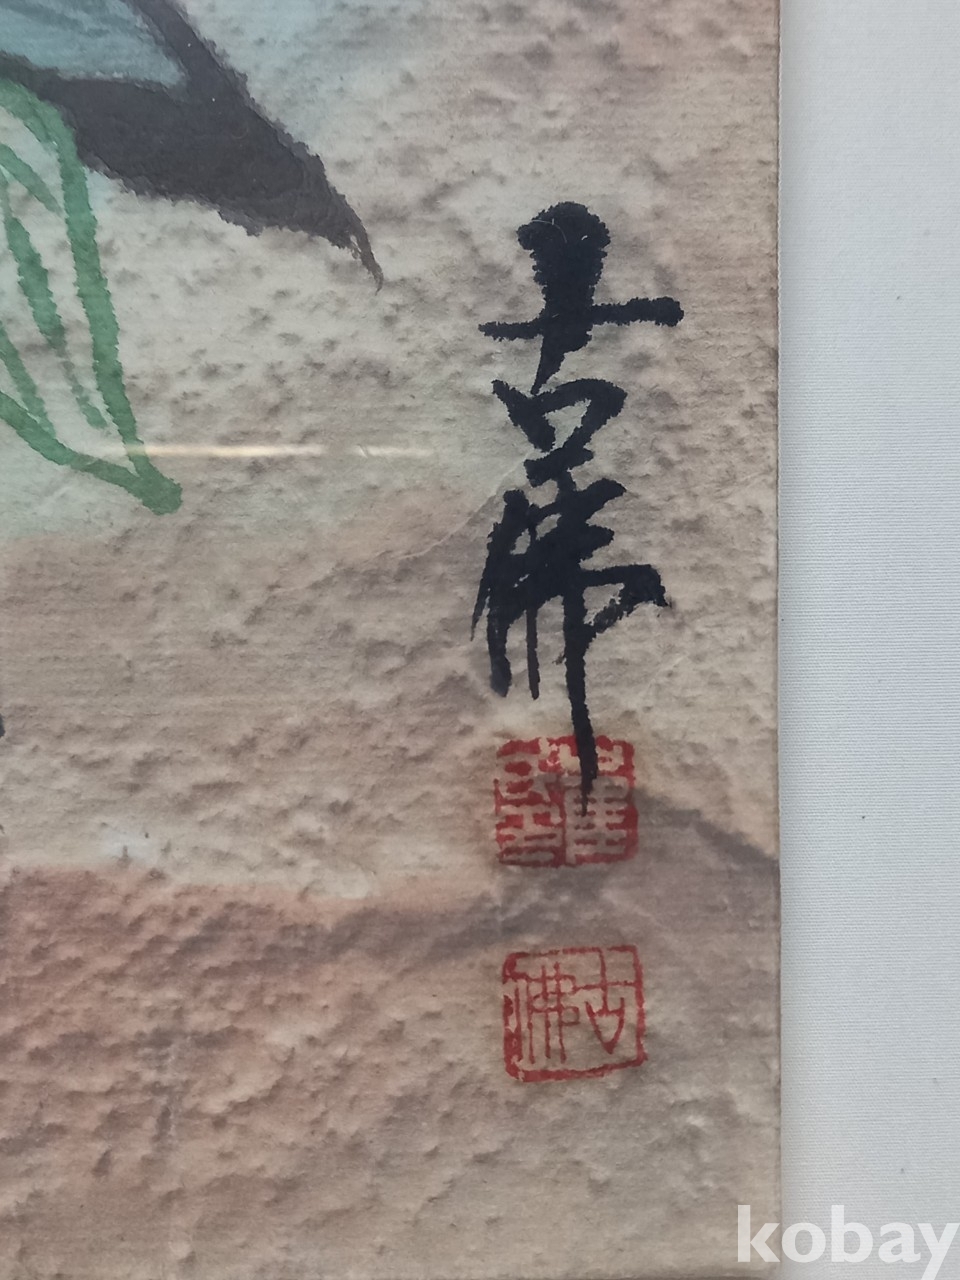 古佛
古佛
kobay